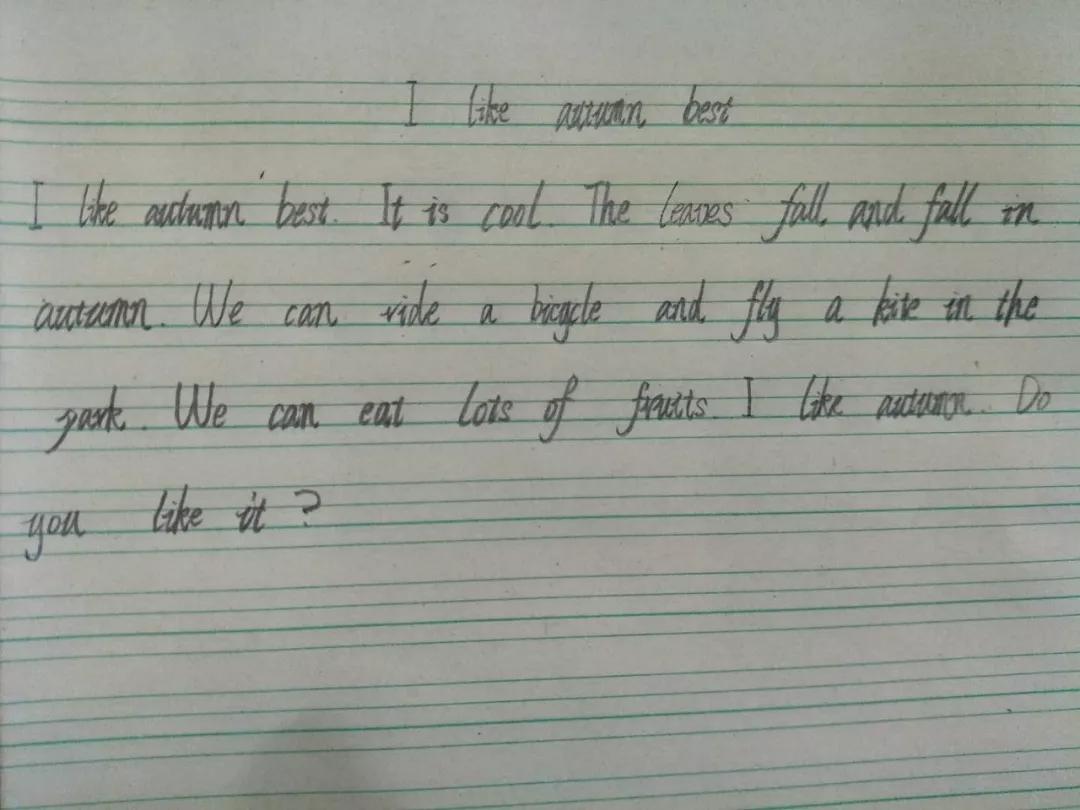 I like autumn best
I like autumn best. It is cool. The leaves fall and fall in
autumn. We can ride a bicycle and fly a kite in the
park. We can eat lots of fruits. I like autumn. Do
you like it?